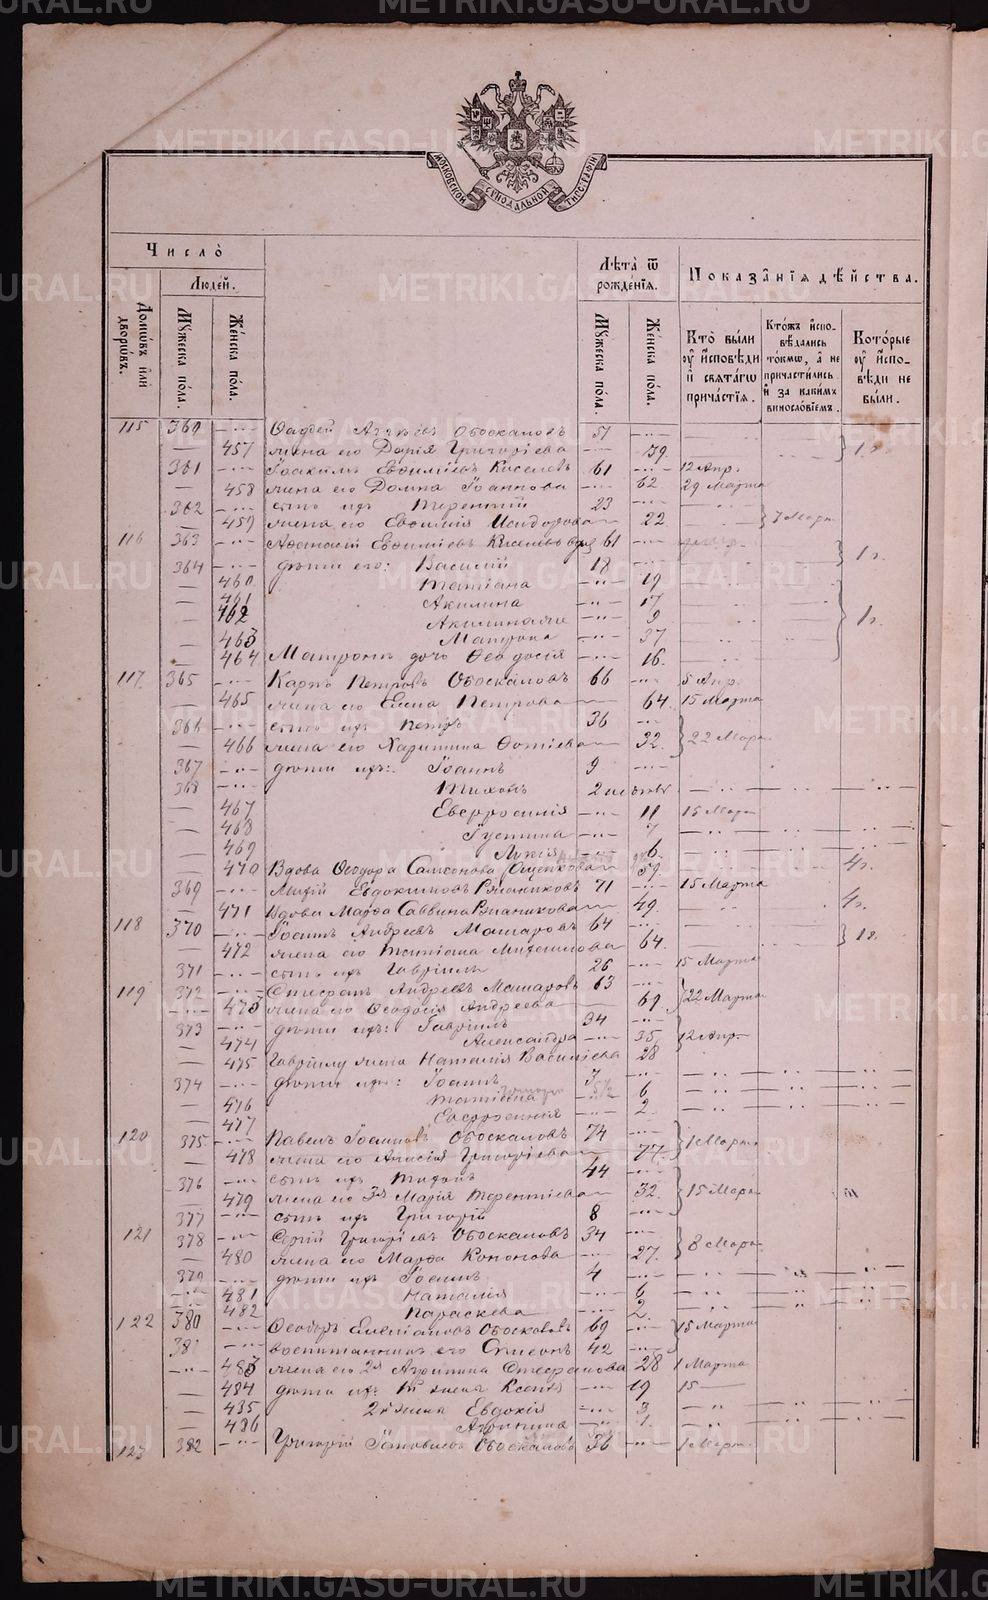 МОСКОВСКОЙ СѴНОДАЛЬНОЙ ТИПОГРАФІИ
Число̀
Людей.
Домѡвъ или дворѡвъ.
Мꙋжеска пола.
Же́нска по́ла.
Лѣта̀ ѿ рожде́нїѧ.
Мꙋжеска по́ла.
Же́нска по́ла.
Показа̂нїѧ дѣйства.
Кто̀ были оу҆ исповѣди и҆ свѧтагѡ прича́стїѧ.
Кто́жъ и҆спо-вѣдались то́кмѡ, а҆ не причасти́лись и҆ за каки́мъ винословїемъ.
Кото́рые оу҆ и҆спо-вѣди не бы́ли.
115 360 Фаддей Обоскаловъ 51
457 жена его Дарія Григоріева 59
361 Іоакимъ Евфиміевъ Киселевъ 61 12 Апр.
458 жена его Домна Іоаннова 62 29 Марта
362 сынъ ихъ Терентій 23
459 жена его Евфимія Исидорова 22 7 Марта
116 363 Афанасій Евфиміевъ Киселевъ вд. 61
364 дѣти его: Василій 18 1 г.
460 Татіана 19
461 Акилина 17
462 9
463 Матрона 37 1 г.
464 Матроны дочь Феодосія 16
117 365 Карпъ Петровъ Обоскаловъ 66 5 Апр.
465 жена его Елена Петрова 64 15 Марта
366 сынъ ихъ Петръ 36
466 жена его Харитина Фотіева 32 22 Мар.
367 дѣти ихъ: Іоаннъ 9
368 Тихонъ 2
467 Евфросинія 11 15 Мар.
468 Іустина 7
469 Лукія 6
470 Вдова Феодора Самсонова 59 4 г.
369 Евдокимовъ Ряпиковъ 71 15 Марта
471 Вдова Марфа Саввина 49 4 г.
118 370 Іоаннъ Андреевъ Машаровъ 64 1 г.
472 жена его Татіана 64
371 сынъ ихъ Гавріилъ 26 15 Марта
119 372 Стефанъ Андреевъ Машаровъ 63 22 Марта
473 жена его Феодосія Андреева 69
373 дѣти ихъ: Гавріилъ 34
474 Александра 35 12 Апр.
475 Гавріилу жена Наталія Василіева 28
374 дѣти ихъ: Іоаннъ 7
476 Татіана 6
477 Евфросинія 2
120 375 Павелъ Іоанновъ Обоскаловъ 74 1 Марта
478 жена его Анисія Григоріева 77
376 сынъ ихъ Тихонъ 44
479 жена его 3я Марія Терентіева 32 15 Мар.
377 сынъ ихъ Григорій 8
121 378 Сергій Григоріевъ Обоскаловъ 34
480 жена его Марфа Кононова 27 8 Мар.
379 дѣти ихъ Іоаннъ 4
481 Наталія 6
482 Параскева 2
122 380 Феодоръ Обоскаловъ 69 15 Марта
381 воспитанникъ его Стефанъ 42
483 жена его 2я Агрипина Стефанова 28 1 Марта
484 дѣти ихъ 1й жены Ксенія 19 15
485 2й жены Евдокія 3
486 Агрипина 1
123 382 Григорій Обоскаловъ 36 1 Мар.
METRIKI.GASO-URAL.RU